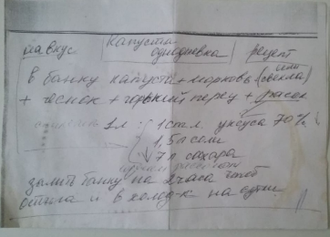 на вкус Капуста однодневка рецепт
в банку капуста + морковь (свекла) или
+ чеснок + горький перец +
1 л : 1 стл. уксуса 70%
1,5 л соли
7 л сахара
залить банку на 2 часа чтоб
остыла и в холод-к на сутки